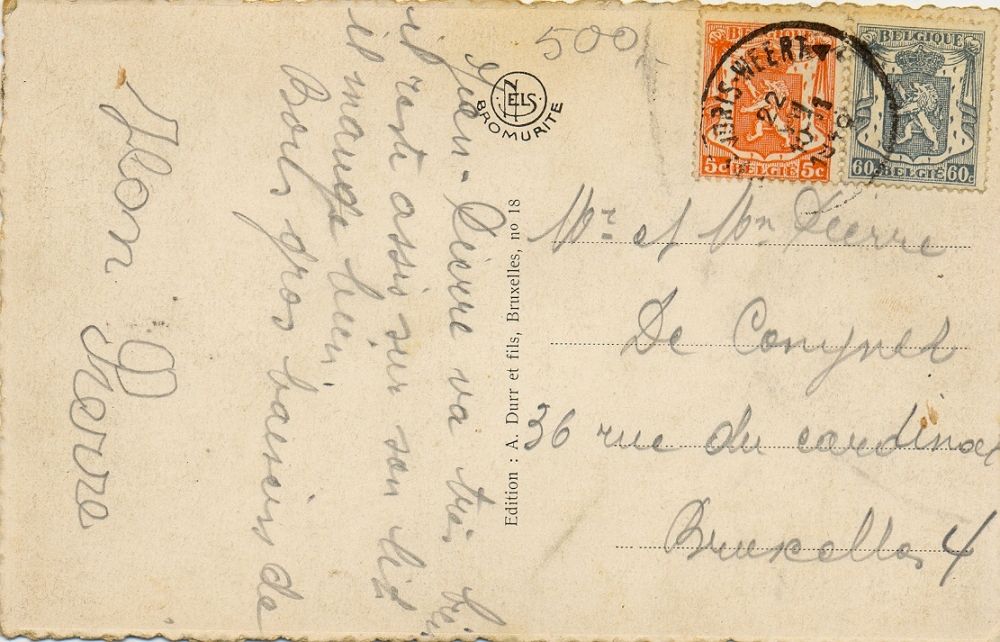 500
NELS
BROMURITE
BELGIQUE
5c BELGIË 5c
BELGIQUE
60c BELGIË 60c
22
Jean-Pierre va très bien
il reste assis sur son lit
il mange bien
Bons gros baisers de
Pierre
Edition : A. Durr et fils, Bruxelles, no 18
Mr et Mm Pierre
De Conynck
36 rue du cardinal
Bruxelles 4